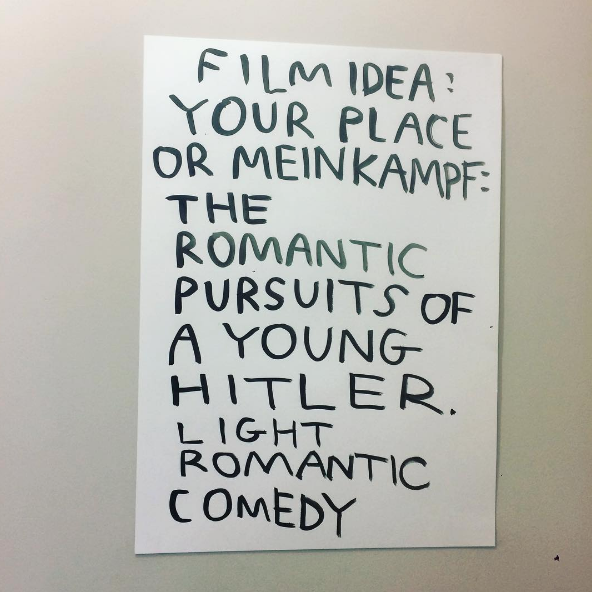 FILM IDEA:
YOUR PLACE
OR MEINKAMPF:
THE
ROMANTIC
PURSUITS OF
A YOUNG
HITLER.
LIGHT
ROMANTIC
COMEDY